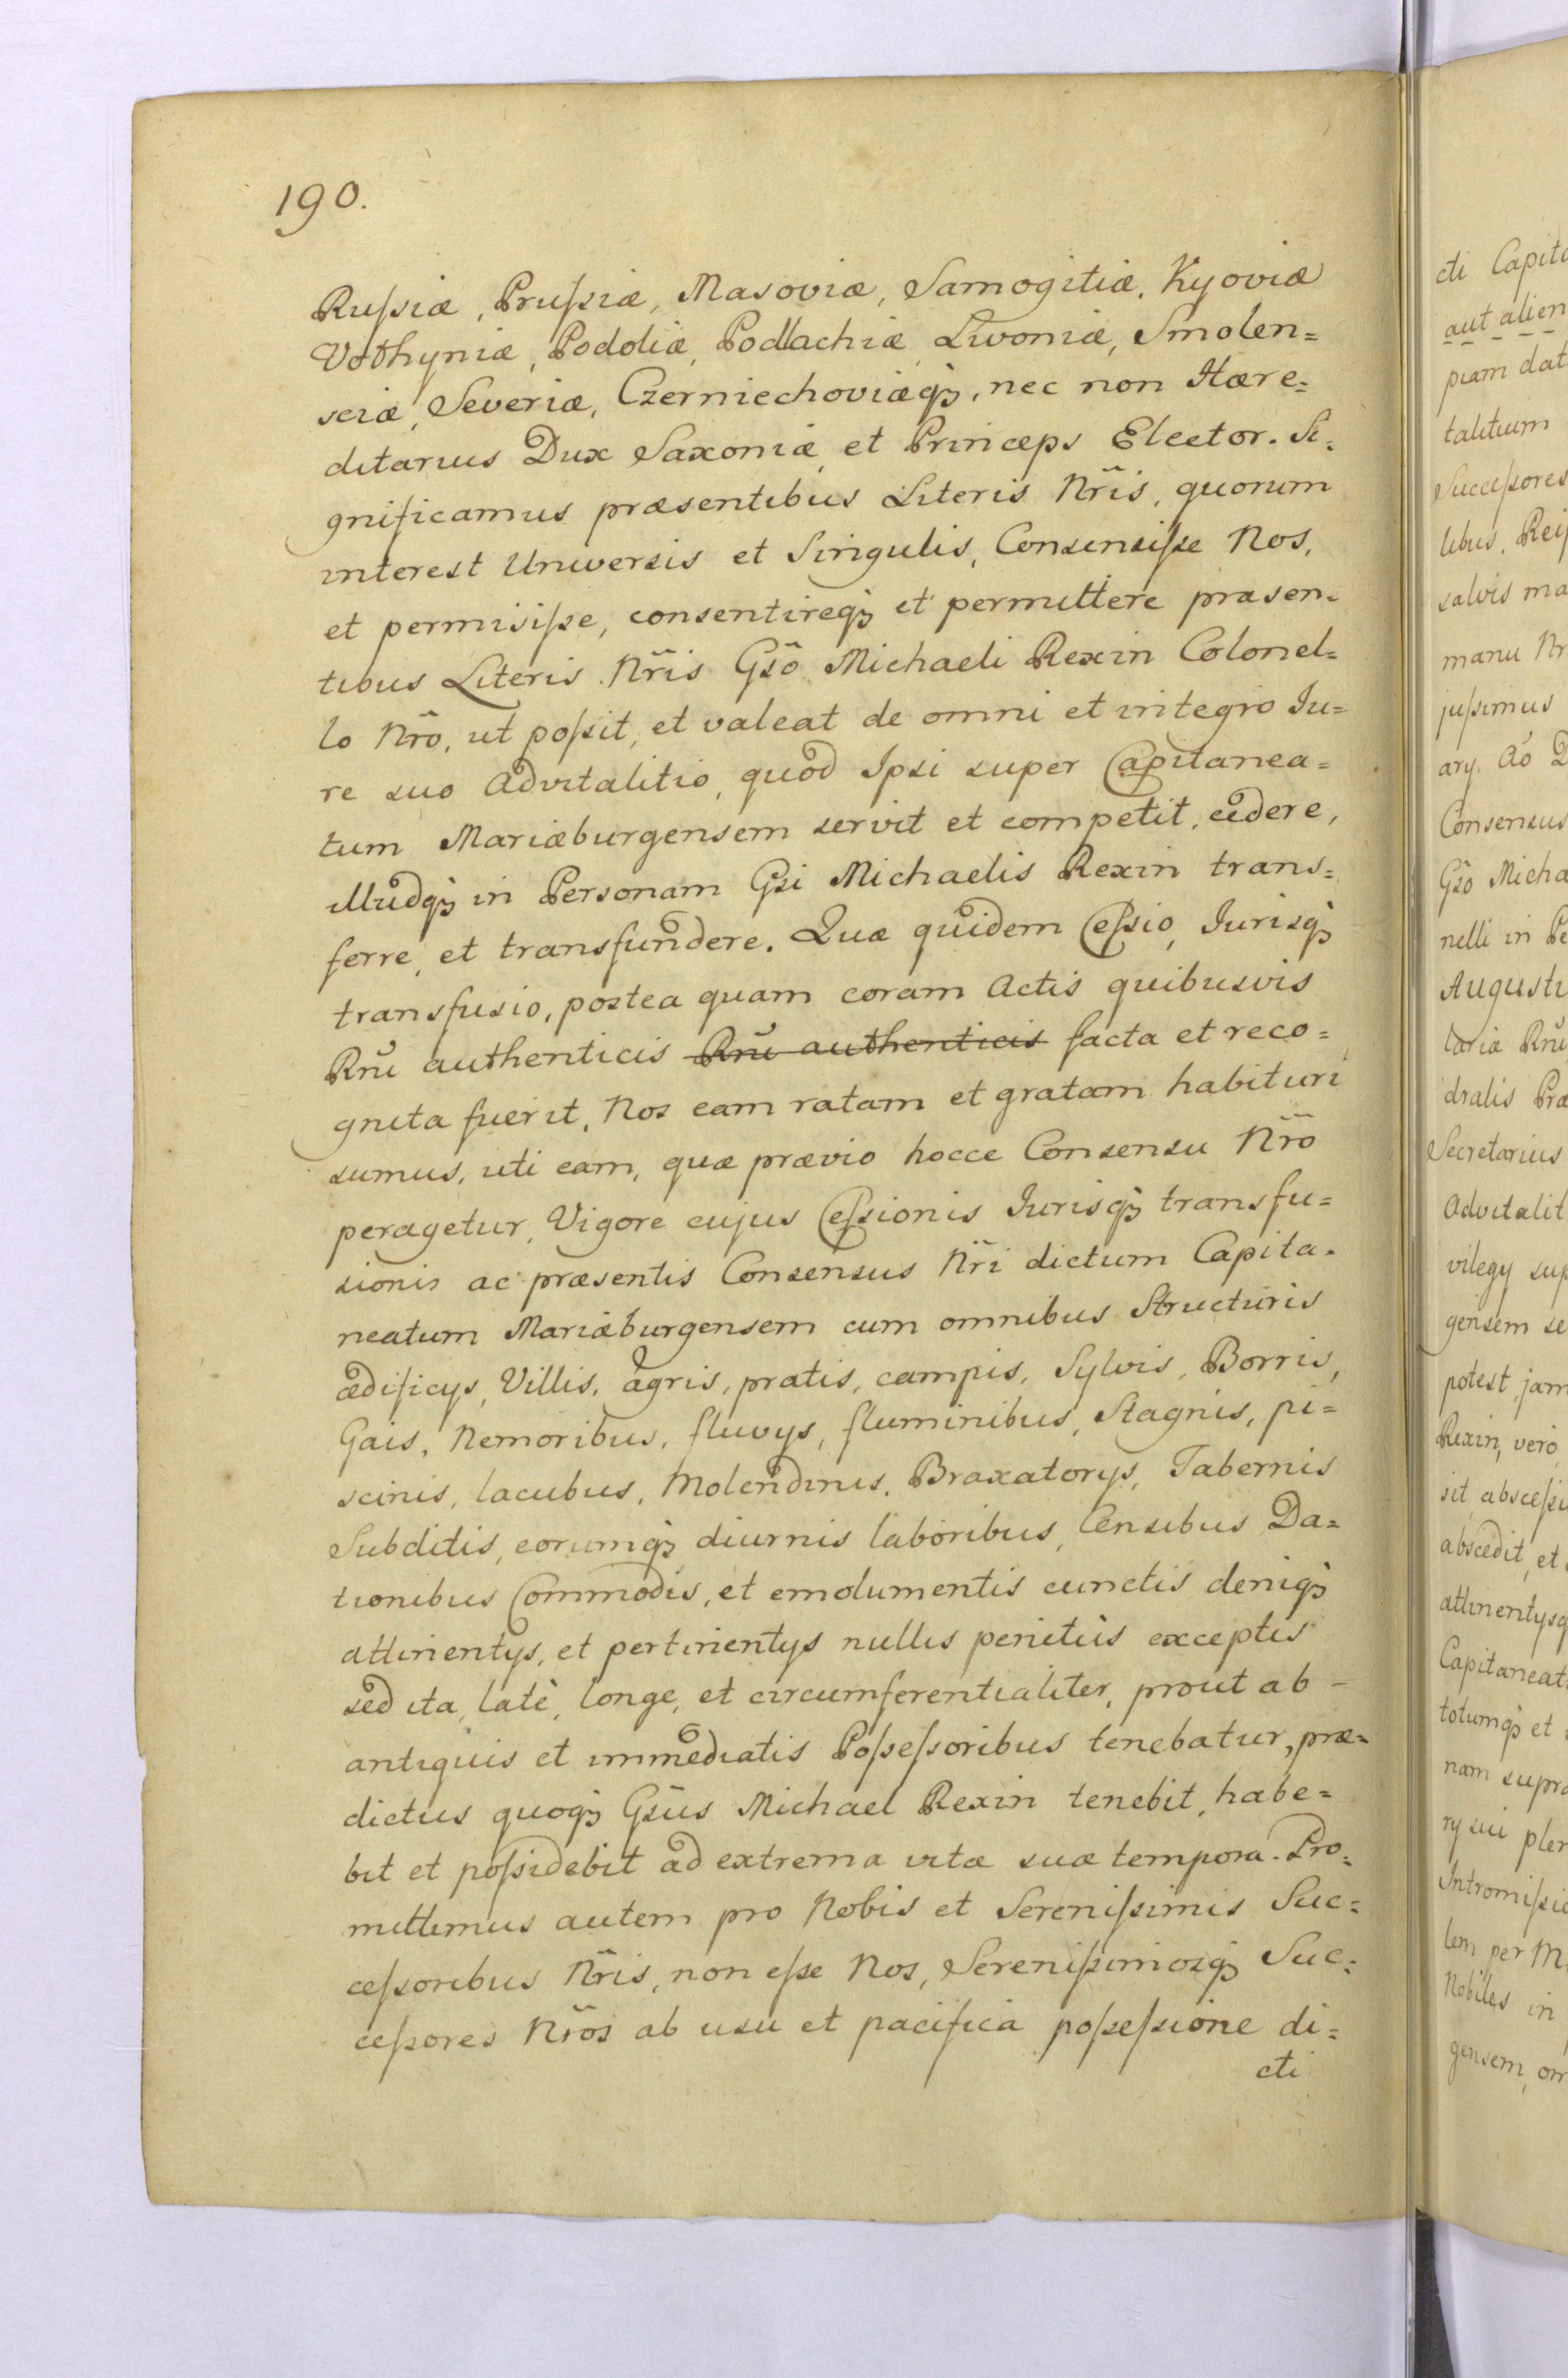 190.
Ruſsiæ, Pruſsiæ, Masoviæ, Samogitiæ, Kyoviæ
Volhyniæ, Podoliæ, Podlachiæ Livoniæ, Smolen=
sciæ, Severiæ, Czerniechoviæq̃, nec non Hære=
ditarius Dux Saxoniæ et Princeps Elector. Si=
gnificamus præsentibus Literis Nr̃is, quorum
interest Universis et Singulis, Consensiſse Nos,
et permisiſse, consentireq̃ et permittere præsen=
tibus Literis Nr̃is Gsõ Michaeli Rexin Colonel=
lo Nr̃o, ut poſsit, et valeat de omni et integro Iu=
re suo Advitalitio, quod Ipsi super Capitanea=
tum Mariæburgensem servit et competit, cedere,
illudq̃ in Personam Gsi Michaelis Rexin trans=
ferre, et transfundere. Quæ quidem Ceſsio, Iurisq̃
transfusio, postea quam coram Actis quibusvis
Rñu authenticis Rñu authenticis facta et reco=
gnita fuerit, Nos eam ratam et gratam habituri
sumus, uti eam, quæ prævio hocce Consensu Nr̃o
peragetur, Vigore cujus Ceſsionis Iurisq̃ transfu=
sionis ac præsentis Consensus Nr̃i dictum Capita=
neatum Mariæburgensem cum omnibus Structuris
ædificys, Villis, agris, pratis, campis, Sylvis, Borris,
Gais, Nemoribus, fluvys, fluminibus, Stagnis, pi=
scinis, lacubus, Molendinis, Braxatorys, Tabernis
Subditis, eorumq̃ diurnis laboribus, Censibus Da=
tionibus Commodis, et emolumentis cunctis deniq̃
attinentys, et pertinentys nullis penitùs exceptis
sed ita, latè, longe, et circumferentialiter, prout ab -
antiquis et immediatis Poſseſsoribus tenebatur, præ=
dictus quoq̃ Gsũs Michael Rexin tenebit, habe=
bit et poſsidebit ad extrema vitæ suæ tempora. Pro=
mittimus autem pro Nobis et Sereniſsimis Suc=
ceſsoribus Nr̃is, non eſse Nos, Sereniſsimosq̃ Suc=
ceſsores Nr̃os ab usu et pacifica poſseſsione di=
cti
cti Capita
aut alien
piam dat
talitium
Succeſsores
libus, Reip
salvis ma
manu Nr
juſsimus
ary Aõ D
Consensus
Gsõ Micha
nelli in Pe
Augusti
laria Rñu
dralis Præ
Secretarius
Advitalit
vilegy sup
gensem se
potest, jam
Rexin, vero
sit, absceſsi
abscedit, et
attinentysq
Capitaneat
totumq̃ et
nam supra
ry sui plen
Intromiſsio
lem per M
Nobiles in
gensem, om